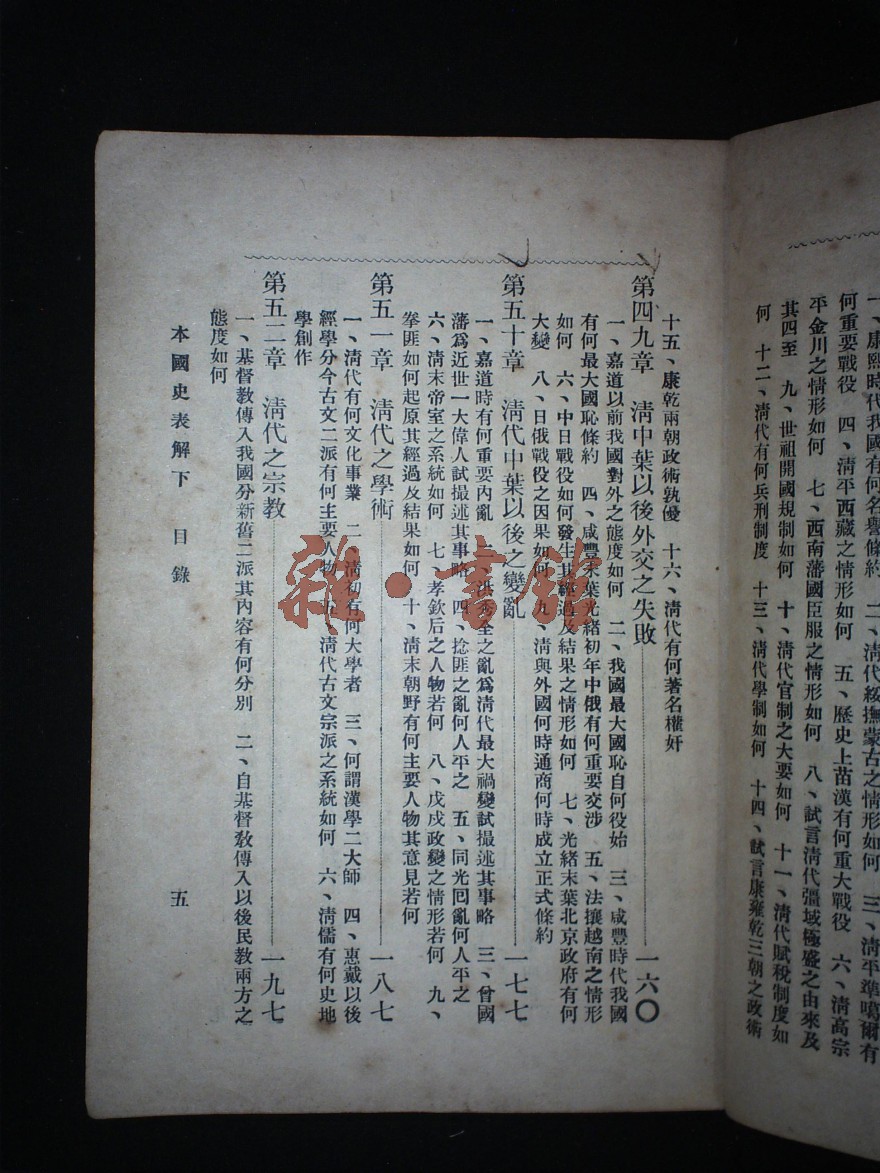 一、康熙時代我國有何名譽條約　二、清代綏撫蒙古之情形如何　三、清平準噶爾有
何重要戰役　四、清平西藏之情形如何　五、歷史上苗漢有何重大戰役　六、清高宗
平金川之情形如何　七、西南藩國臣服之情形如何　八、試言清代疆域極盛之由來及
其四至　九、世祖開國規制如何　十、清代官制之大要如何　十一、清代賦稅制度如
何　十二、清代有何兵刑制度　十三、清代學制如何　十四、試言康雍乾三朝之政術
十五、康乾兩朝政術孰優　十六、清代有何著名權奸
第四九章　清中葉以後外交之失敗……一六〇
一、嘉道以前我國對外之態度如何　二、我國最大國恥自何役始　三、咸豐時代我國
有何最大國恥條約　四、咸豐末葉光緒初年中俄有何重要交涉　五、法攘越南之情形
如何　六、中日戰役如何發生其經過及結果之情形如何　七、光緒末葉北京政府有何
大變　八、日俄戰役之因果如何　九、清與外國何時通商何時成立正式條約
第五十章　清代中葉以後之變亂……一七七
一、嘉道時有何重要內亂　二、洪秀全之亂爲清代最大禍變試撮述其事略　三、曾國
藩爲近世一大偉人試撮述其事略　四、捻匪之亂何人平之　五、同光回亂何人平之
六、清末帝室之系統如何　七、孝欽后之人物若何　八、戊戌政變之情形若何　九、
拳匪如何起原其經過及結果如何　十、清末朝野有何主要人物其意見若何
第五一章　清代之學術……一八七
一、清代有何文化事業　二、清初有何大學者　三、何謂漢學二大師　四、惠戴以後
經學分今古文二派有何主要人物　五、清代古文宗派之系統如何　六、清儒有何史地
學創作
第五二章　清代之宗教……一九七
一、基督教傳入我國分新舊二派其內容有何分別　二、自基督教傳入以後民教兩方之
態度如何
本國史表解下　目錄　五
雜·書館